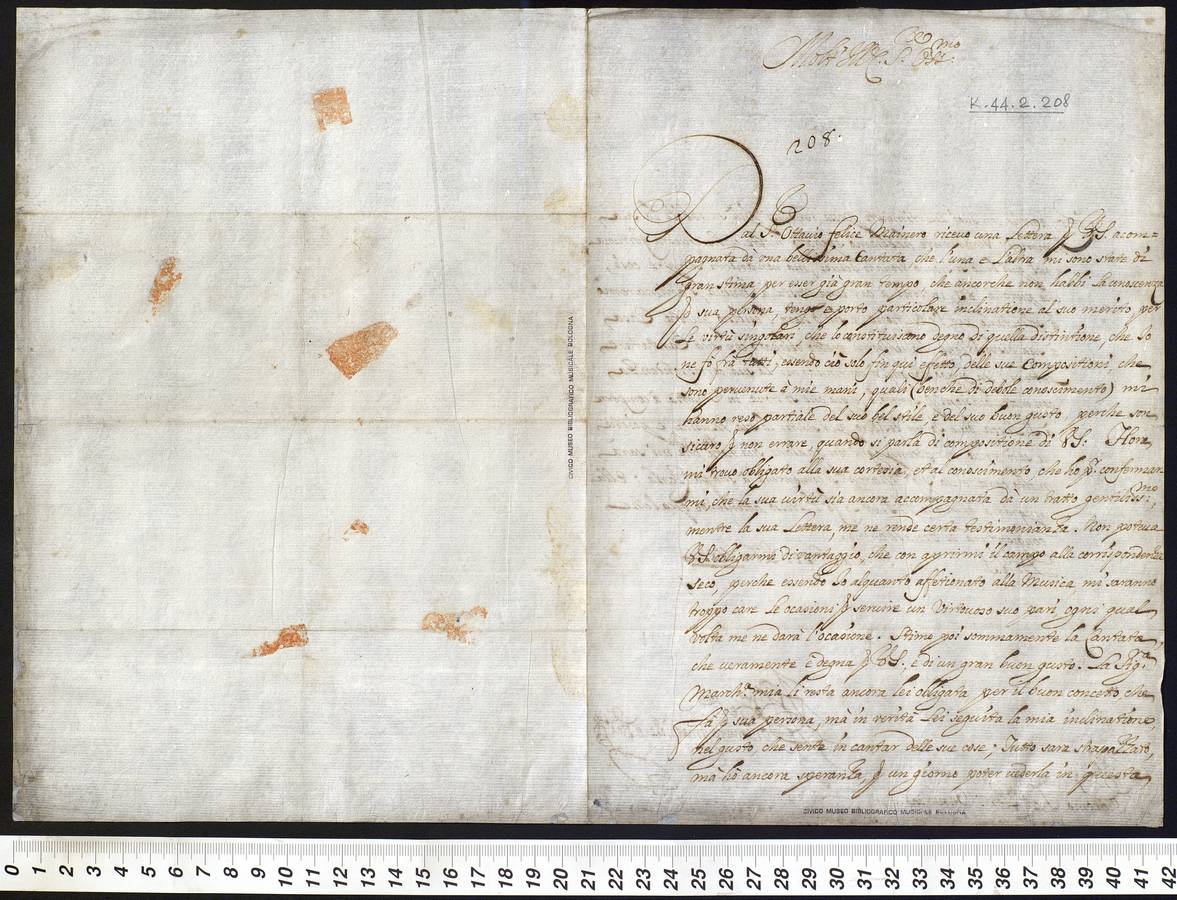 Molt' Ill.e S.r
K.44.2.208
208.
Dal S.r Ottavio felice Mainero ricevo una Lettera di V.S. acom=
pagnata dà una bellissima Cantata che l'una e l'altra mi sono state di
gran stima, per esser già gran tempo, che ancorche non habbi la conoscenza
di sua persona, tengo e porto particolare inclinatione al suo merito, per
le virtù singolari, che lo constituiscano degno di quella distintione, che Io
ne fò frà tutti; essendo ciò solo fin quì effetto, delle sue Compositioni, che
sono pervenute à mie mani, quali (benche di debole conoscimento) mi
hanno reso partiale del suo bel stile, e del suo buon gusto, perche son
sicuro di non errare, quando si parla di compositione di V.S. Hora,
mi trovo obligato alla sua cortesia, et al conoscimento, che ho p. confermar
mi, che la sua virtù sia ancora accompagnata dà un tratto gentiliss.mo
mentre la sua Lettera, me ne rende certa testimonianza. Non poteva
V.S. obligarmi di vantaggio, che con aprirmi il campo alla corrispondenza
seco, perche essendo Io alquanto affetionato alla Musica, mi saranno
troppo care le ocasioni di servire un Virtuoso suo pari, ogni qual
volta me ne darà l'ocasione. Stimo poi sommamente la Cantata,
che veramente è degna di V.S. e di un gran buon gusto. La Sig.ra
March.a mia li resta ancora lei obligata per il buon concetto, che
fà di sua persona, mà in verità lei seguita la mia inclinatione,
nel gusto, che sente in cantar delle sue cose; Tutto sarà strapazzato,
mà hò ancora speranza, di un giorno poter vederla in questa
CIVICO MUSEO BIBLIOGRAFICO MUSICALE BOLOGNA
CIVICO MUSEO BIBLIOGRAFICO MUSICALE BOLOGNA
0 1 2 3 4 5 6 7 8 9 10 11 12 13 14 15 16 17 18 19 20 21 22 23 24 25 26 27 28 29 30 31 32 33 34 35 36 37 38 39 40 41 42